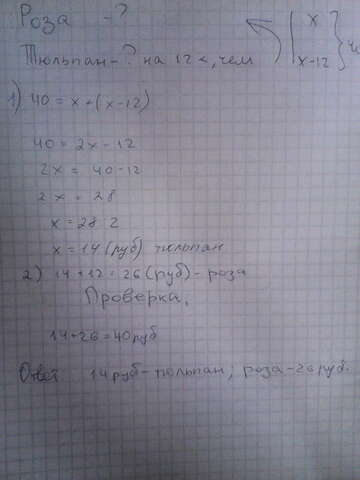 Роза -?
Тюльпан-? на 12 <, чем
x
x-12
1) 40 = x+(x-12)
40 = 2x - 12
2x = 40-12
2x = 28
x = 28:2
x = 14 (руб) тюльпан
2) 14+12=26 (руб)-роза
Проверка,
14+26=40руб
Ответ 14руб-тюльпан; роза-26руб.